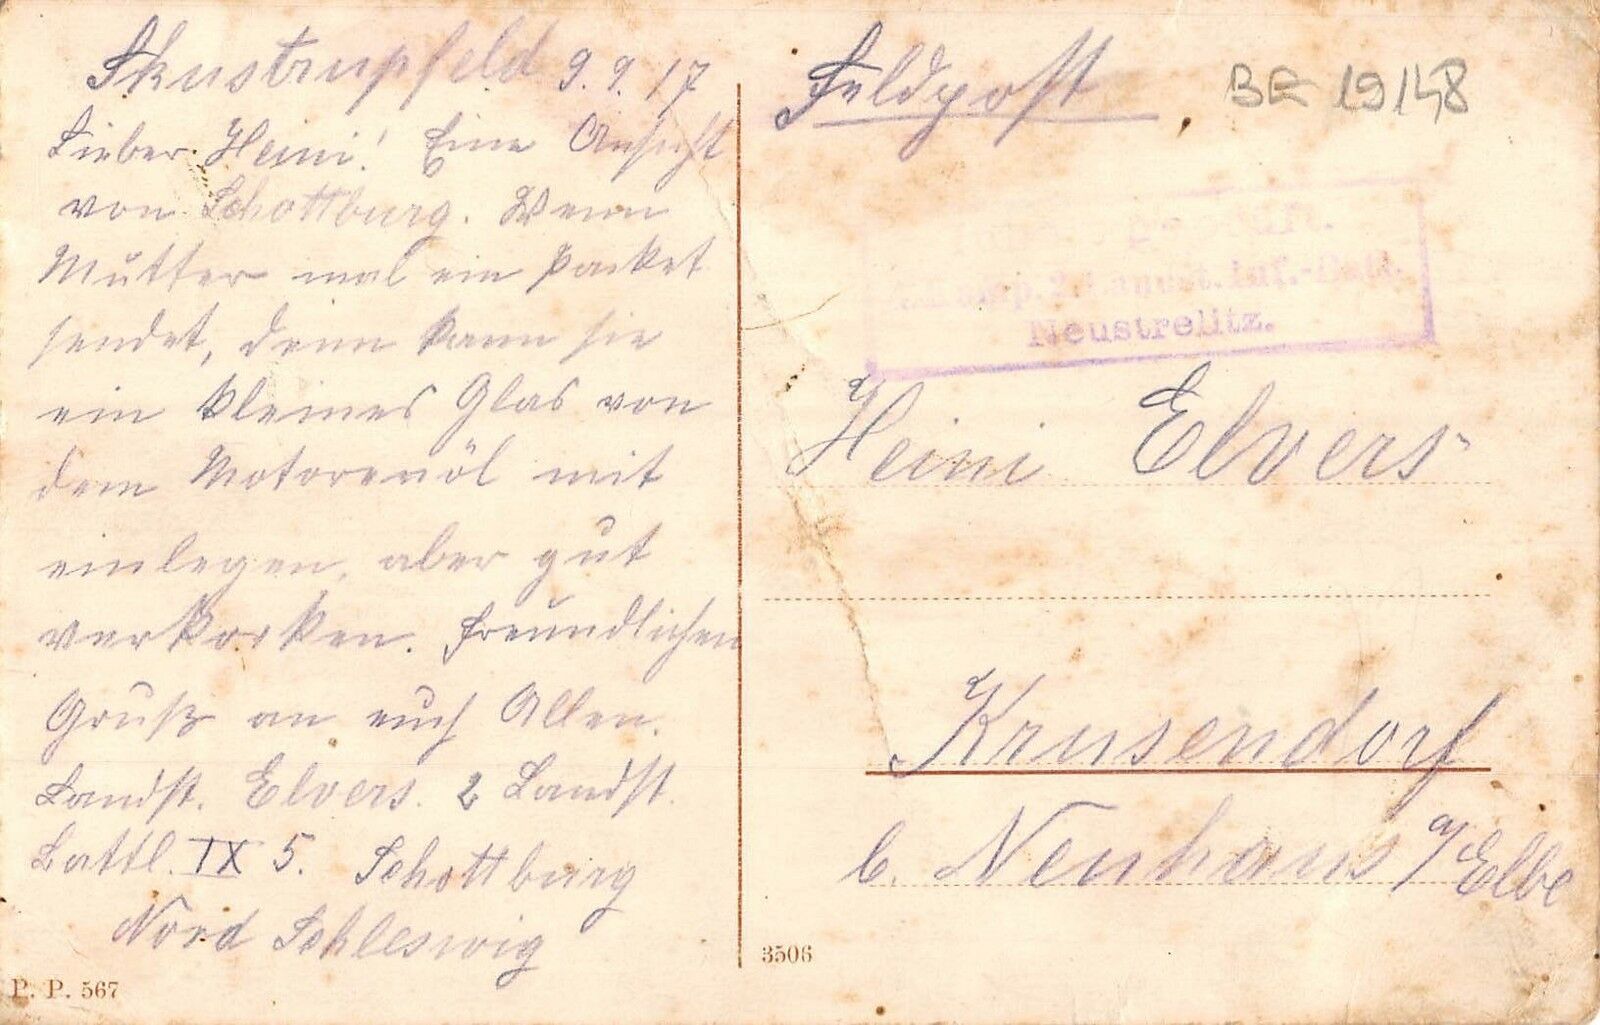 Skustrupfeld 9.9.17
Lieber Heini! Eine Ansicht
von Schottburg. Wenn
Mutter mal ein Packet
sendet, denn kann sie
ein kleines Glas von
dem Motorenöl mit
einlegen, aber gut
verkorken. Freundlichen
Gruß an euch Allen.
Landst. Elvers. 2 Landst.
Battl. IX 5. Schottburg
Nord Schleswig
P. P. 567
Feldpost
BE 19148
Neustrelitz.
Heini Elvers
Krusendorf
b. Neuhaus a/Elbe
3506